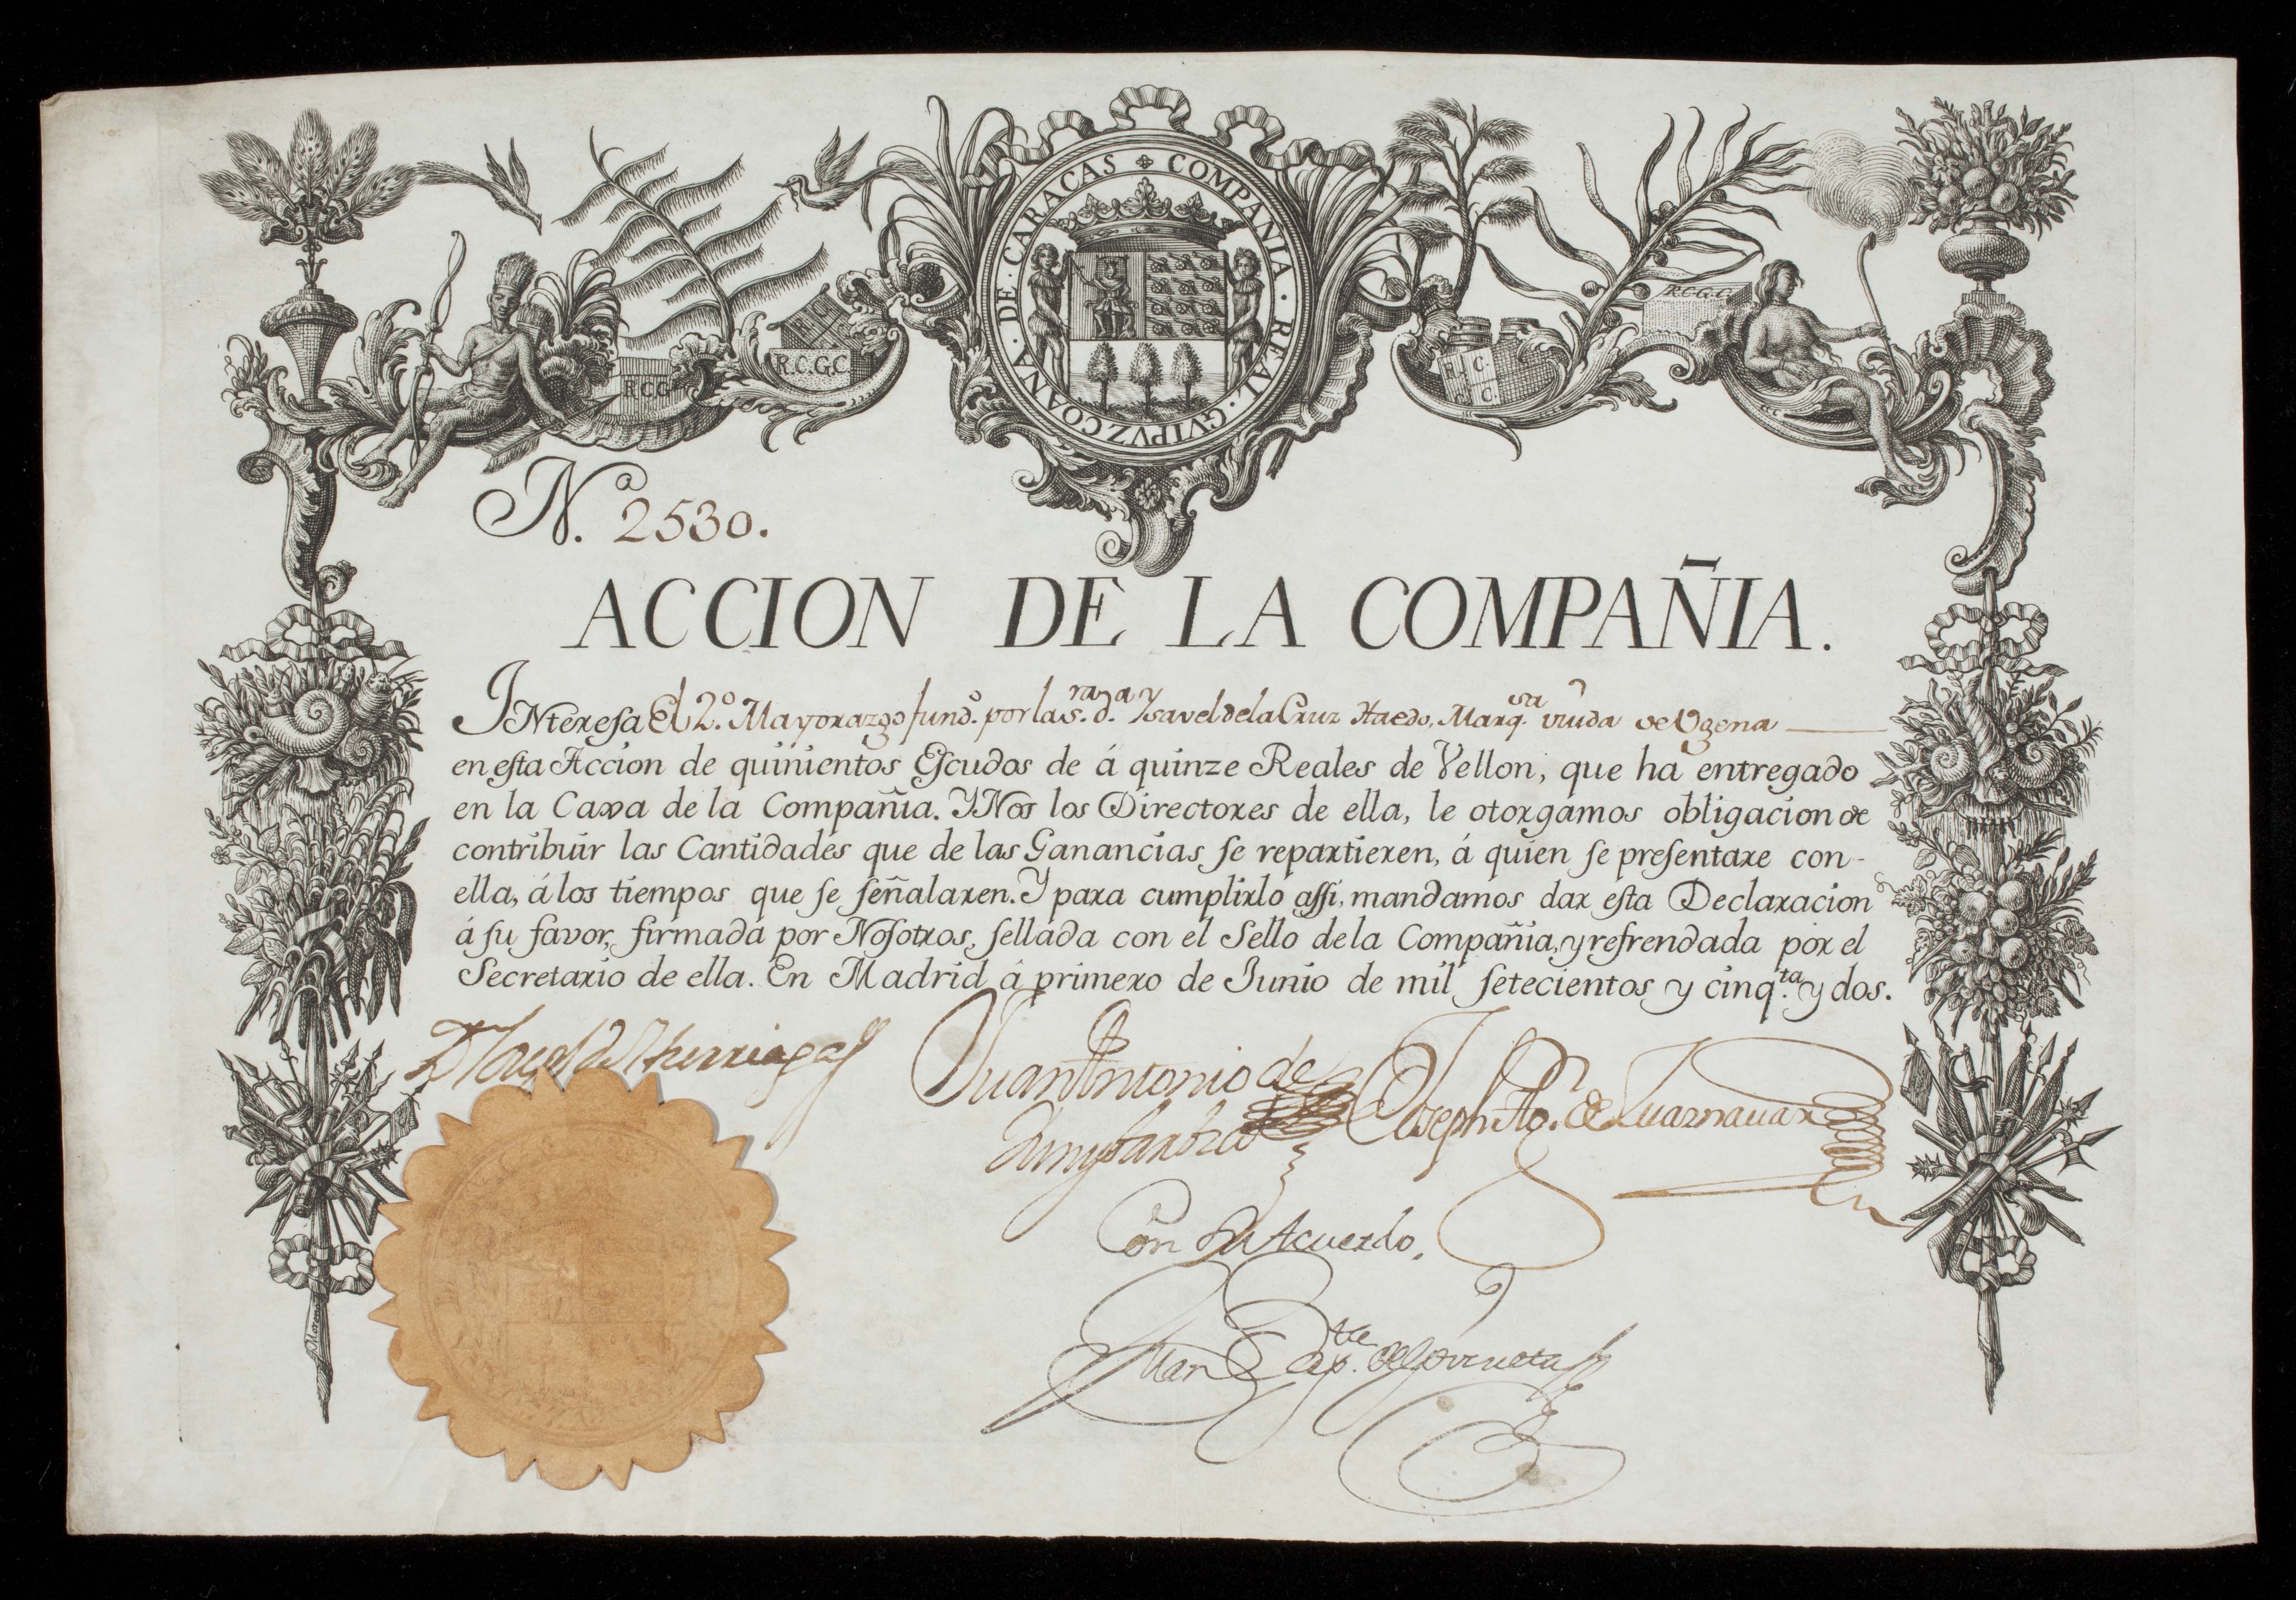 COMPAÑIA · REAL · GVIPVZCOANA · DE · CARACAS
R.C.G.C.
R.C.G.
R.C.G.C.
R. C. C.
N.ᵃ 2530.
ACCION DE LA COMPAÑIA.
INteresa El 2.º Mayorazgo fund.º por la s.ʳᵃ d.ᵃ Ysavel de la Cruz Haedo, Marq.ˢᵃ viuda de Ugena
en esta Accion de quinientos Escudos de á quinze Reales de Vellon, que ha entregado
en la Caxa de la Compañia. Y Nos los Directores de ella, le otorgamos obligacion de
contribuir las Cantidades que de las Ganancias se repartieren, á quien se presentare con-
ella, á los tiempos que se señalaren. Y para cumplirlo assi, mandamos dar esta Declaracion
á su favor, firmada por Nosotros, sellada con el Sello de la Compañia, y refrendada por el
Secretario de ella. En Madrid á primero de Junio de mil setecientos y cinq.ᵗᵃ y dos.
Juan Antonio de
Joseph Ant.º de Yturriaga
Joseph Ant.º de Zuaznavar
Con Su Acuerdo,